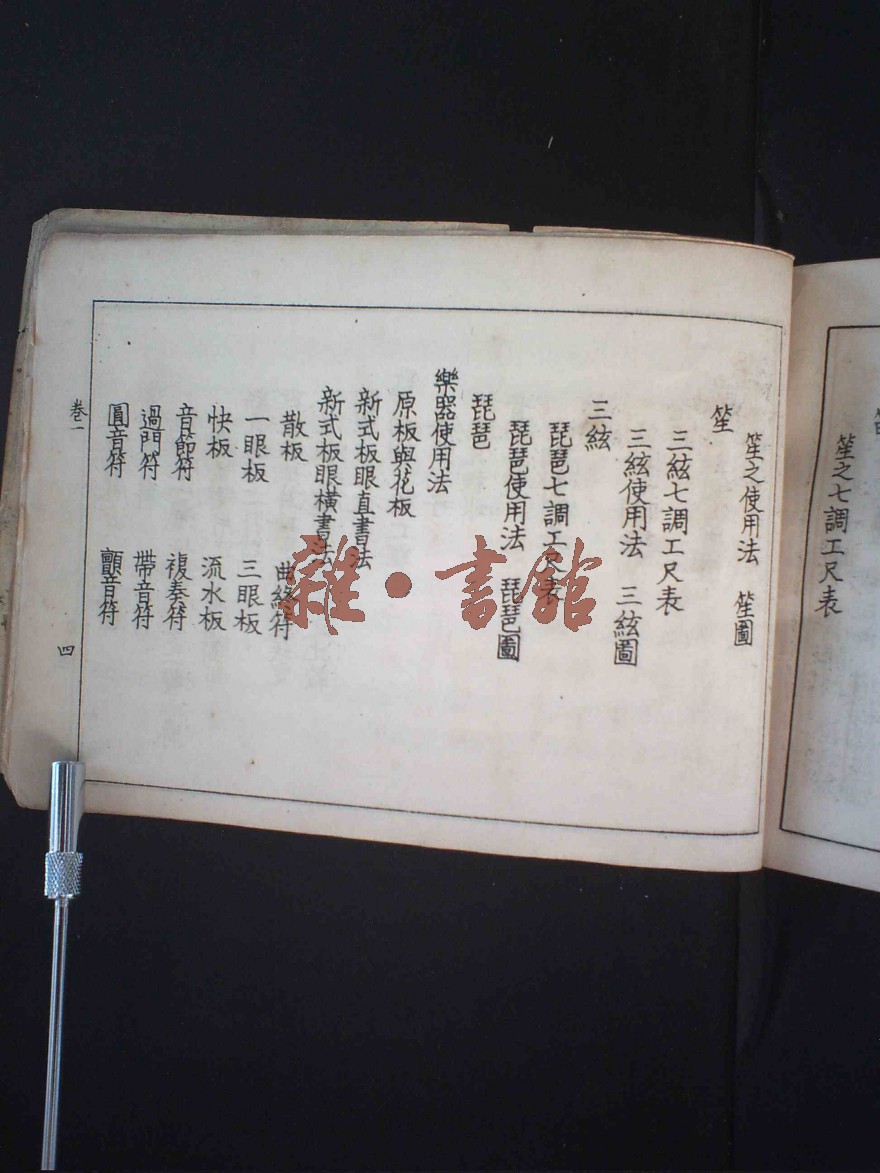 笛
笙之七調工尺表
笙之使用法　笙圖
笙
三絃七調工尺表
三絃使用法　三絃圖
三絃
琵琶七調工尺表
琵琶使用法　琵琶圖
琵琶
樂器使用法
原板與花板
新式板眼直書法
新式板眼橫書法
散板　曲終符
一眼板　三眼板
快板　流水板
音節符　複奏符
過門符　帶音符
圓音符　顫音符
卷一　四
雜·書館